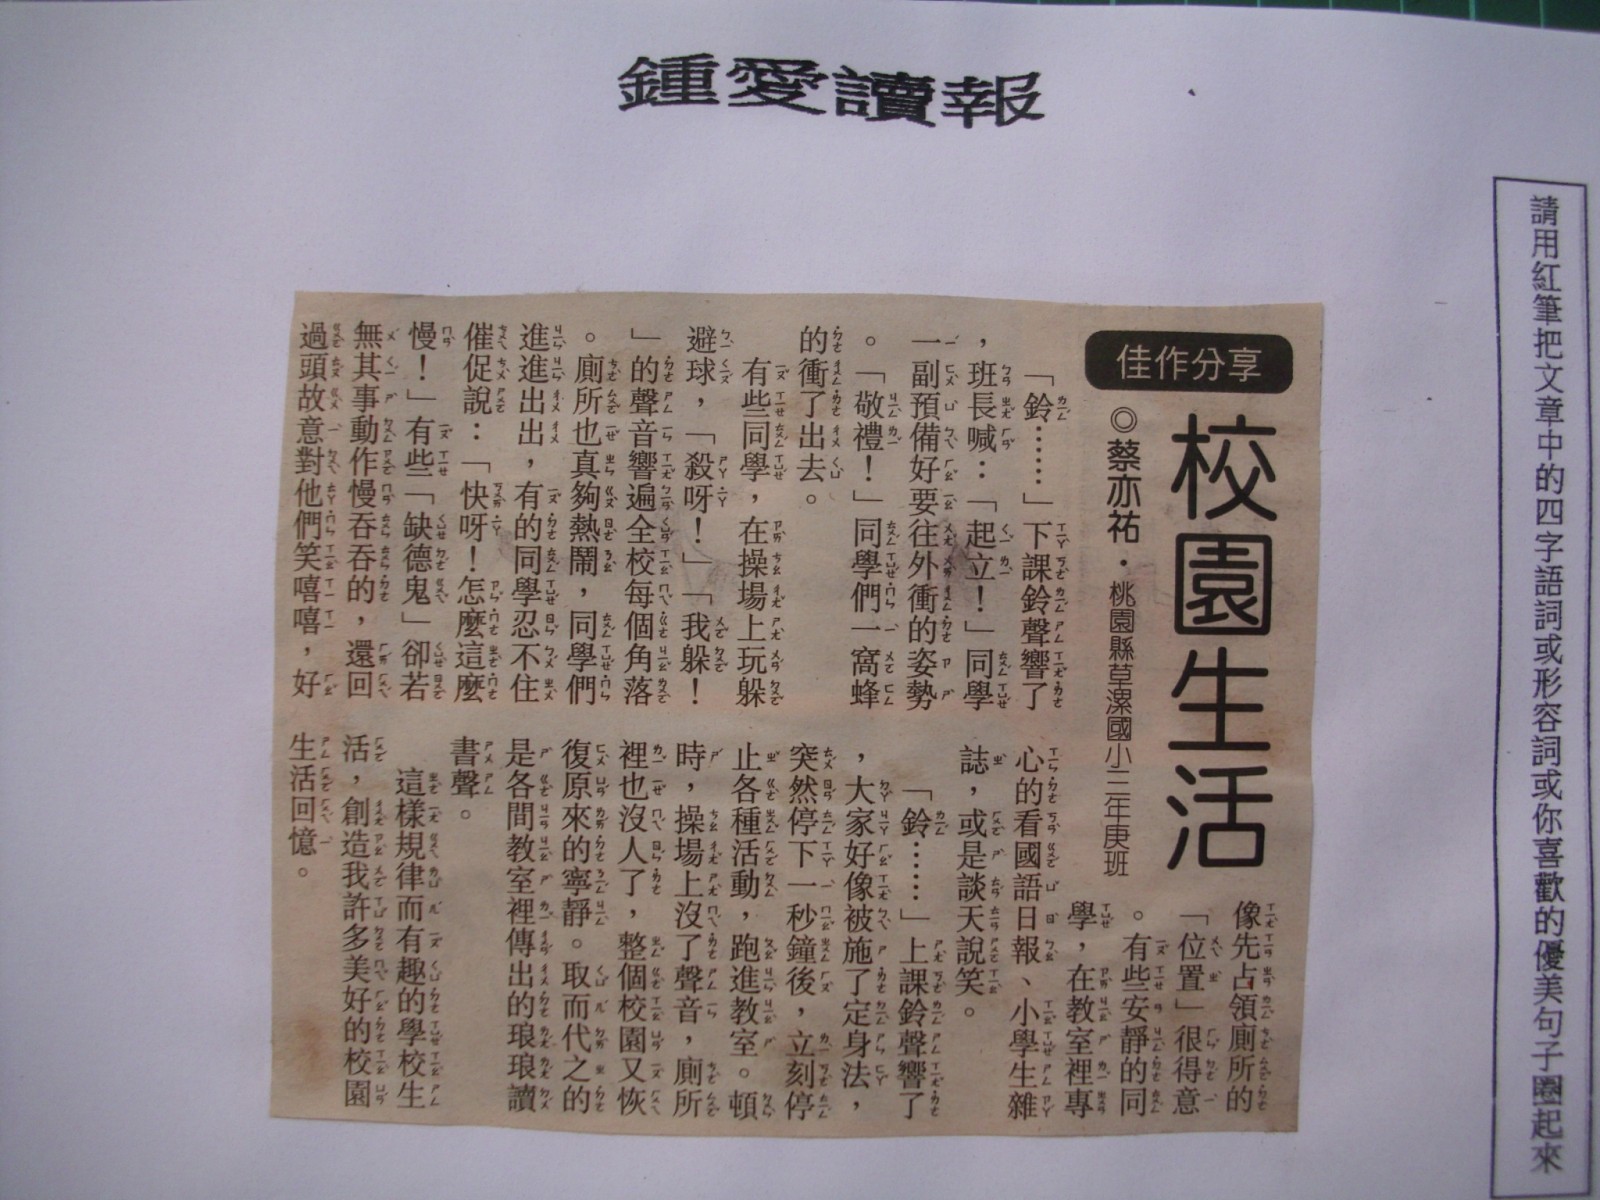 鍾愛讀報
請用紅筆把文章中的四字語詞或形容詞或你喜歡的優美句子圈起來
佳作分享
校園生活
◎蔡亦祐・桃園縣草漯國小三年庚班
「鈴……」下課鈴聲響了
，班長喊：「起立！」同學
一副預備好要往外衝的姿勢
。「敬禮！」同學們一窩蜂
的衝了出去。
有些同學，在操場上玩躲
避球，「殺呀！」「我躲！
」的聲音響遍全校每個角落
。廁所也真夠熱鬧，同學們
進進出出，有的同學忍不住
催促說：「快呀！怎麼這麼
慢！」有些「缺德鬼」卻若
無其事動作慢吞吞的，還回
過頭故意對他們笑嘻嘻，好
像先占領廁所的
「位置」很得意
。有些安靜的同
學，在教室裡專
心的看國語日報、小學生雜
誌，或是談天說笑。
「鈴……」上課鈴聲響了
，大家好像被施了定身法，
突然停下一秒鐘後，立刻停
止各種活動，跑進教室。頓
時，操場上沒了聲音，廁所
裡也沒人了，整個校園又恢
復原來的寧靜。取而代之的
是各間教室裡傳出的琅琅讀
書聲。
這樣規律而有趣的學校生
活，創造我許多美好的校園
生活回憶。